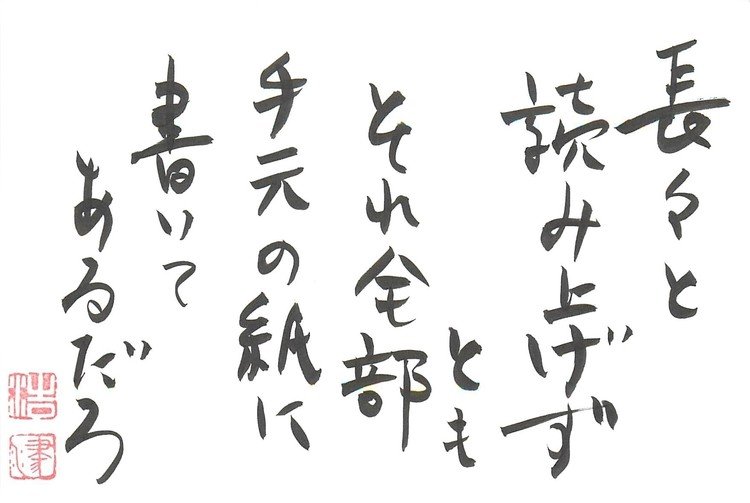 長々と
読み上げず
とも
それ全部
手元の紙に
書いて
あるだろ